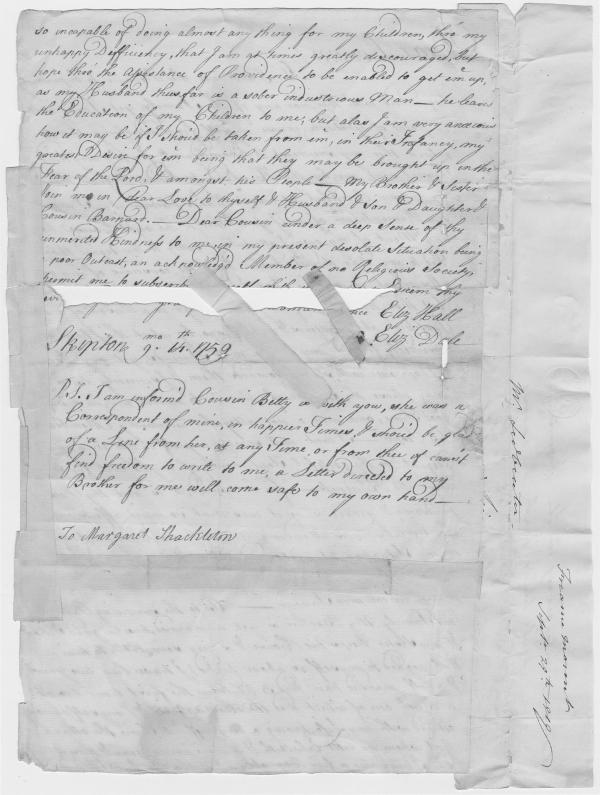 so incapable of doing almost any thing for my Children, thro' my
unhappy Defficiency, that I am at times greatly discouraged, but
hope thro' the Assistance of Providence to be enabled to get em up,
as my Husband thus far is a sober industrious Man — he leaves
the Education of my Children to me; but alas I am very anxious
how it may be if I shou'd be taken from em, in their Infancy, my
greatest Desire for em being that they may be brought up in the
Fear of the Lord, & amongst his People — My Brother & Sister
Join me in dear Love to thyself & Husband & Son & Daughter &
Cousin Barnard. — Dear Cousin under a deep Sense of thy
unmerited Kindness to me in my present desolate Situation being
a poor Outcast, an acknowledg'd Member of no Religious Society,
permit me to subscribe Esteem thy
Eliz Hall
Skipton mo 9. th 14. 1759 Eliz Dale
P.S. I am inform'd Cousin Betty is with you, she was a
Correspondent of mine, in happier Times, I shou'd be glad
of a Line from her, at any Time, or from thee if can'st
find freedom to write to me, a Letter directed to my
Brother for me will come safe to my own hand —
To Margaret Shackleton
Mrs Leadbeater